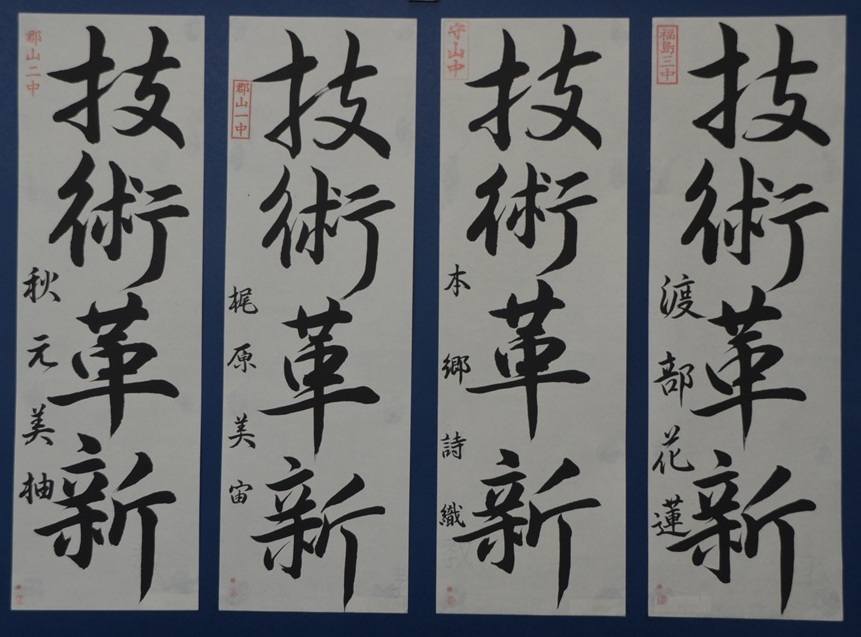 福島三中
技術革新
渡部花蓮
守山中
技術革新
本郷詩織
郡山一中
技術革新
梶原美宙
郡山二中
技術革新
秋元美柚